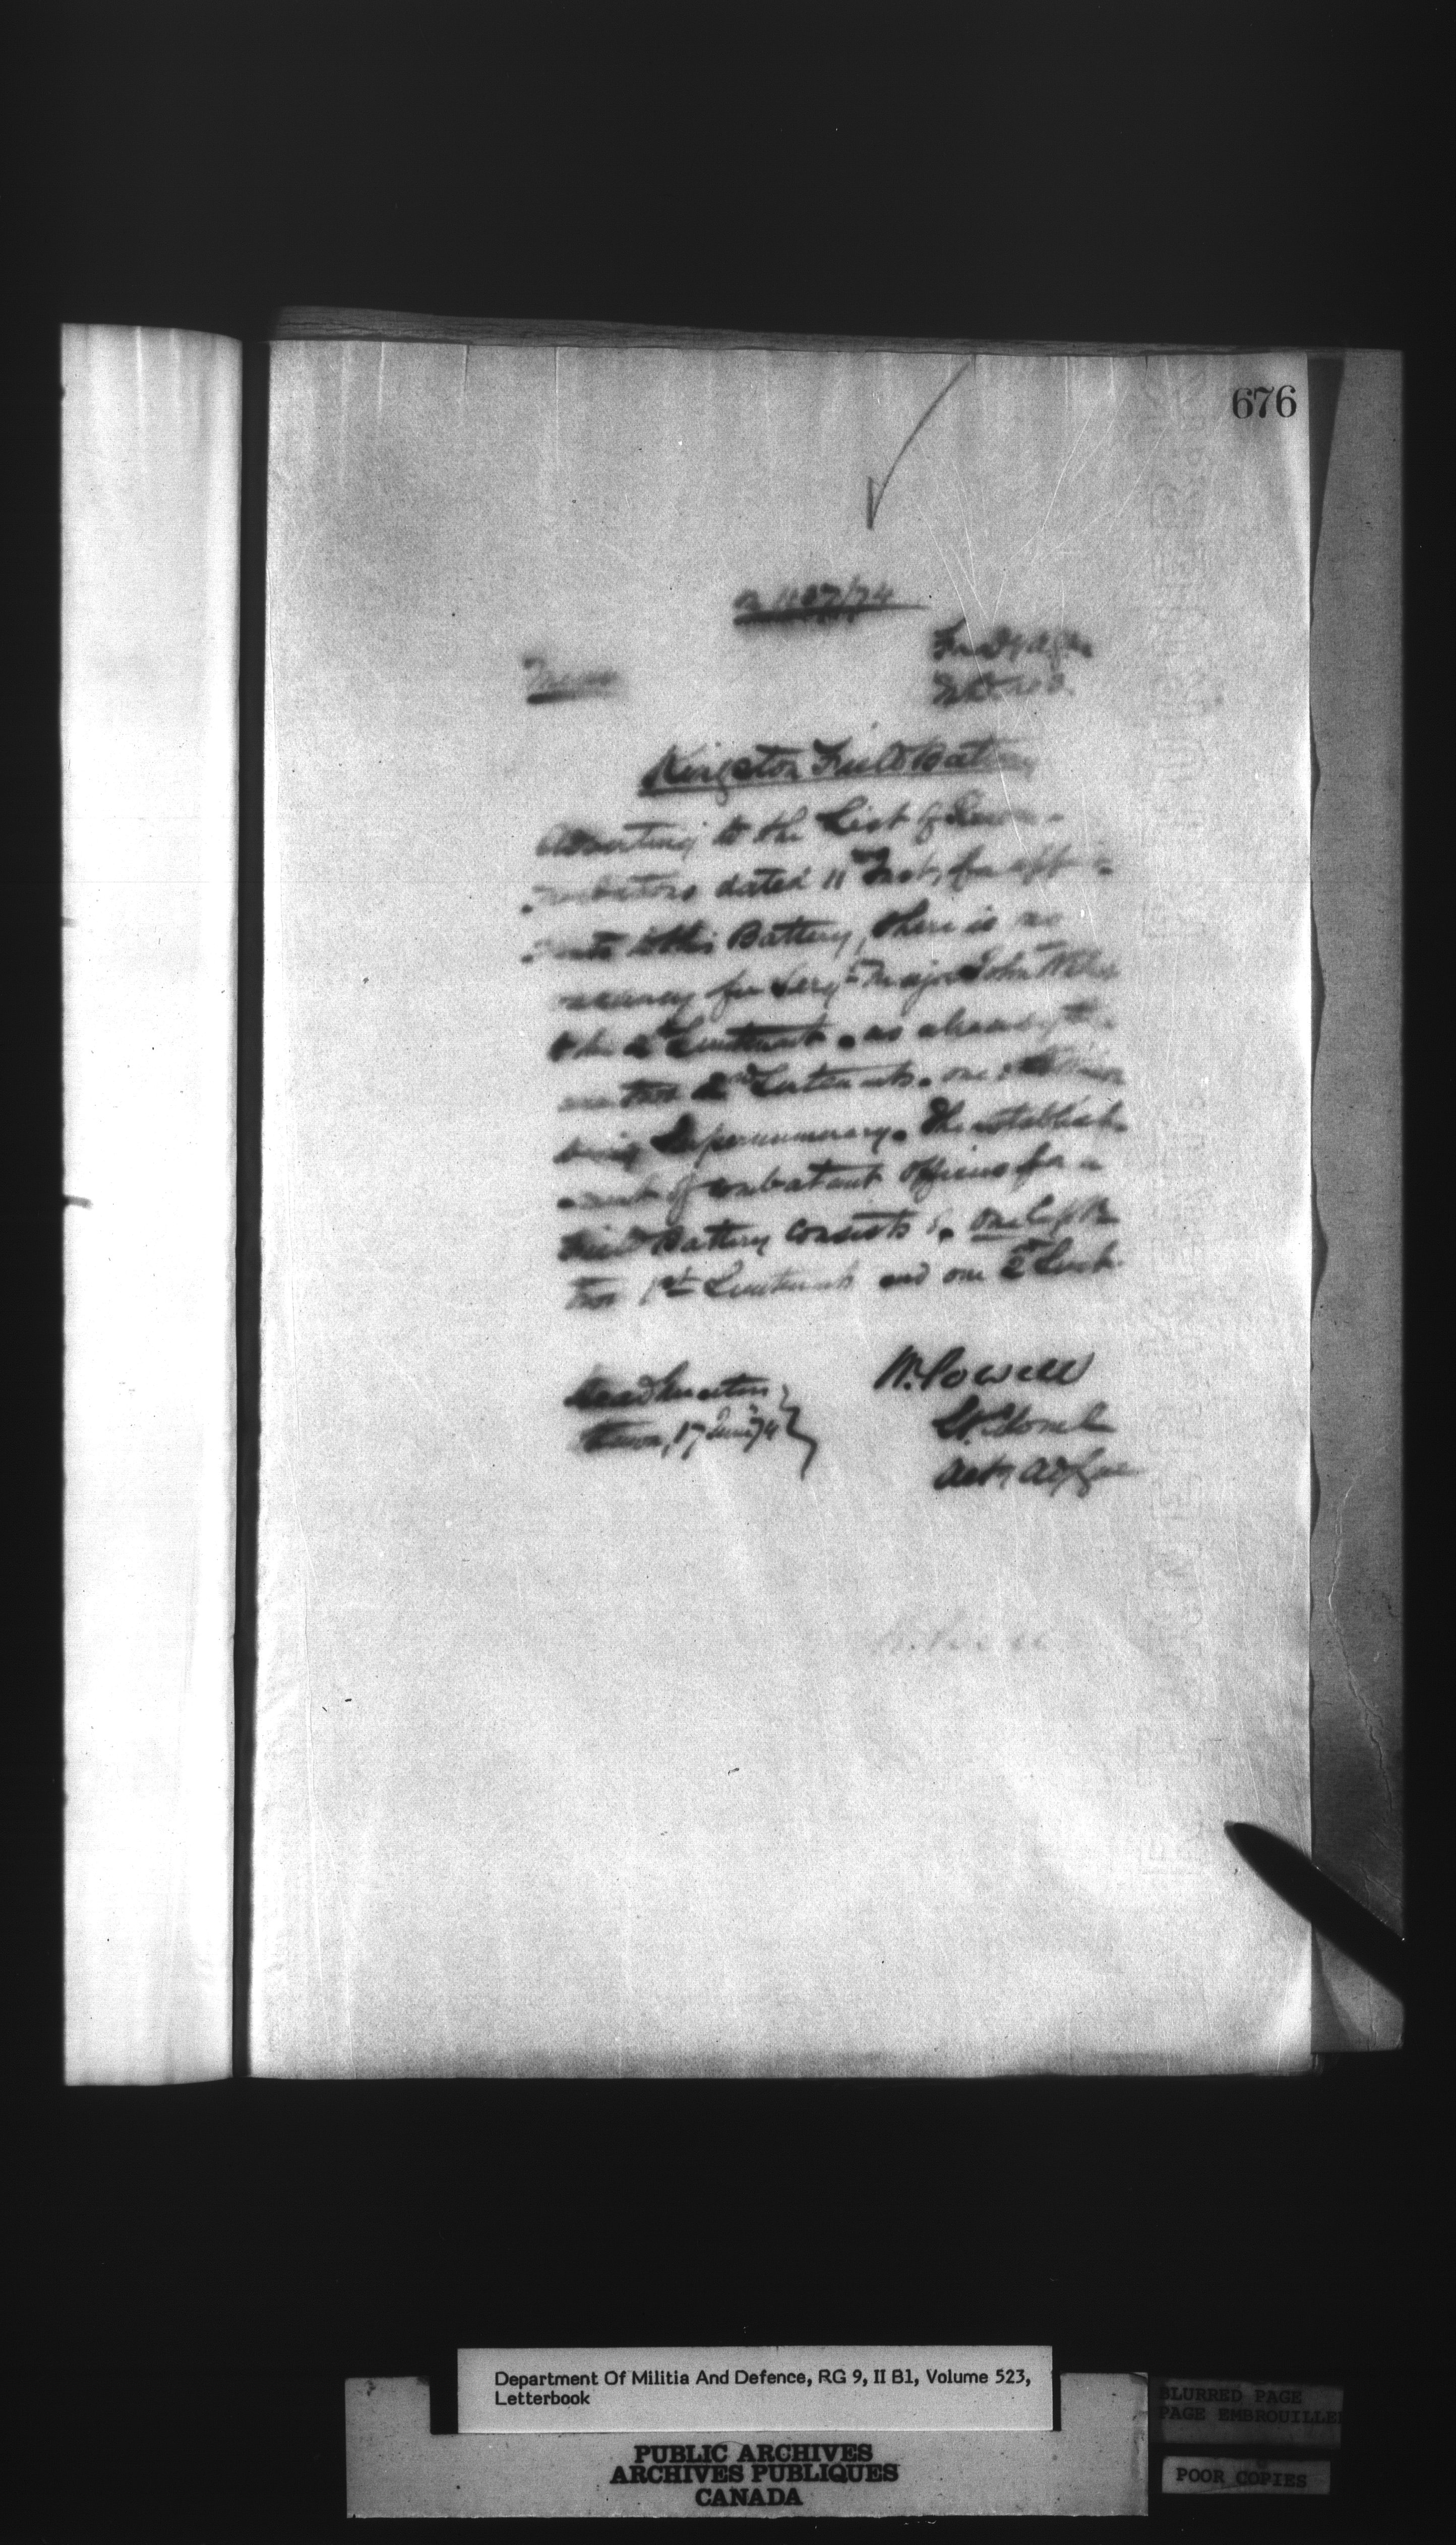 676
Memo
Kingston Field Battery
Adverting to the List of Recom-
-mendations dated 11th Inst, for appoint-
-ments to this Battery, there is no
vacancy for Sergt Major John
to be 2d Lieutenant. as already there
are two 2nd Lieutenants. one
being Supernumerary. The establish-
-ment of combatant officers for a
Field Battery consists of. One Capt
two 1st Lieutenants and one 2d Lieut.
Head Quarters
Ottawa, 17 June 74
W. Powell
Lt. Colonel
Actg Adjt Gen
Department Of Militia And Defence, RG 9, II B1, Volume 523,
Letterbook
BLURRED PAGE
PAGE EMBROUILLEE
POOR COPIES
PUBLIC ARCHIVES
ARCHIVES PUBLIQUES
CANADA